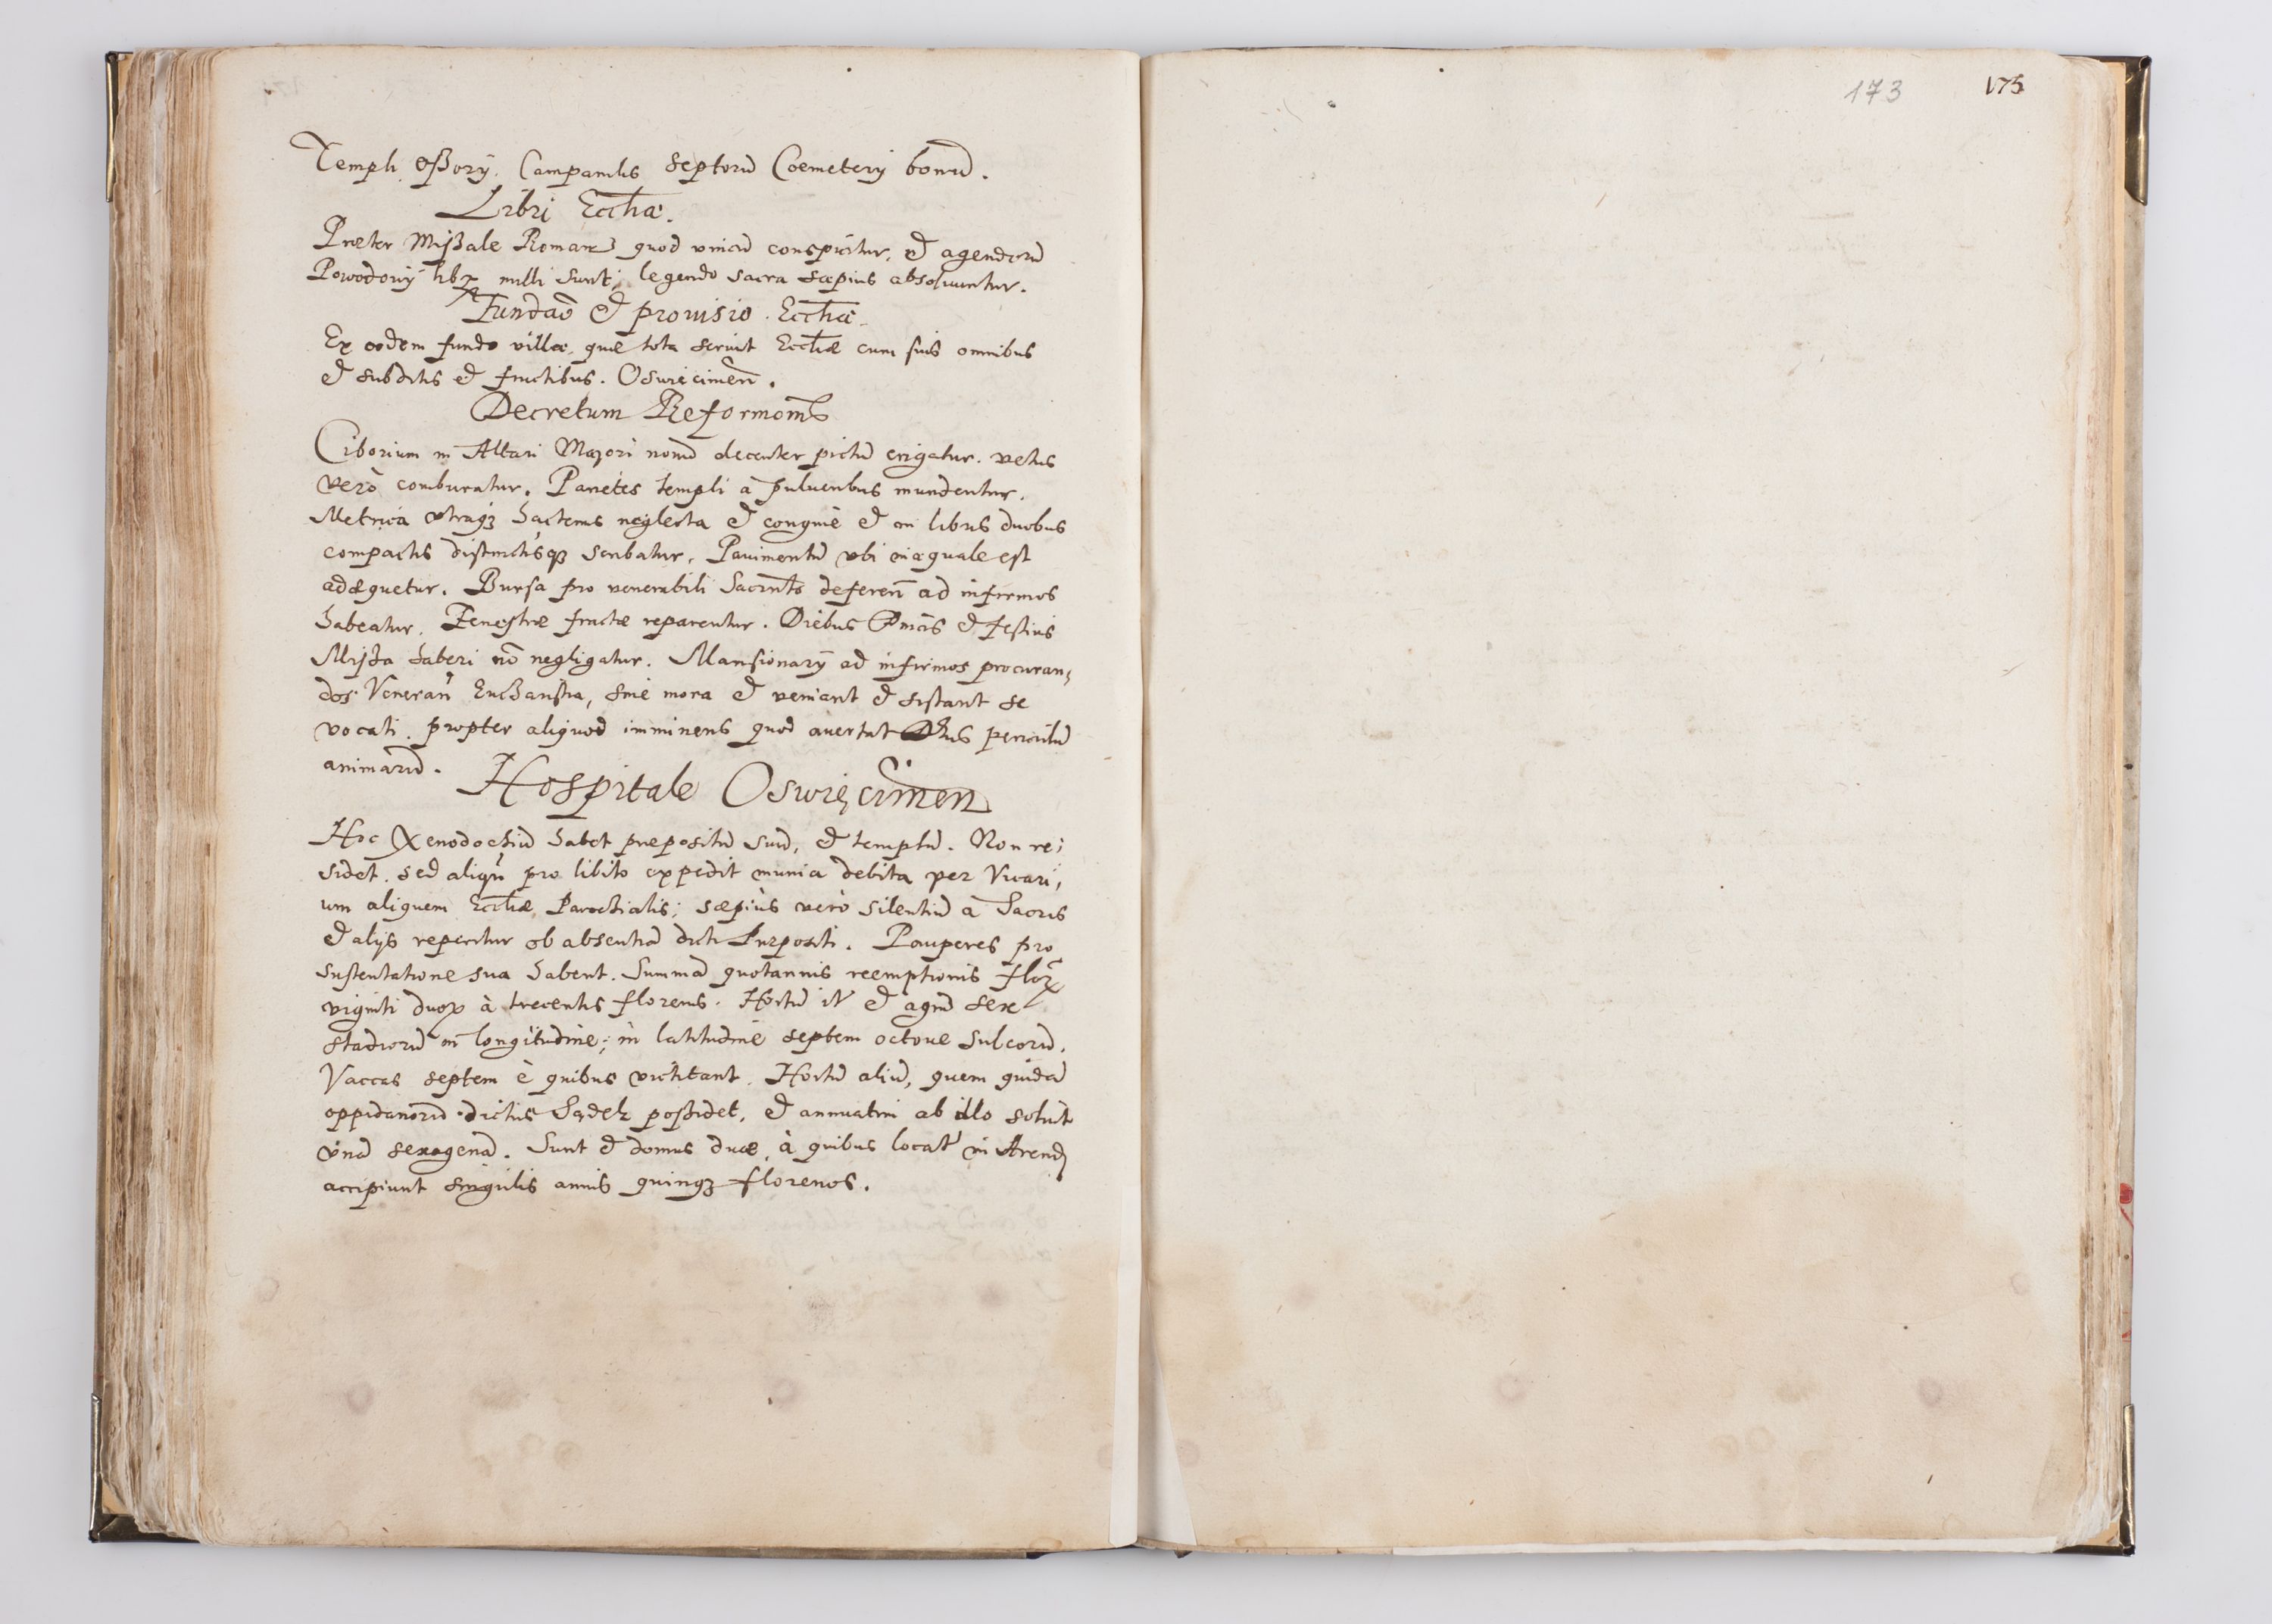 Templi, oßorÿ. Campanilis septorū Coemeterij bonū.
Libri Eccłiæ.
Præter Mißale Roman̄ quod vnicū conspicitur, et agendorū
Powodovÿ libr nulli sunt; legendo sacra sæpius absoluuntur.
Fundaō et prouisio Eccłiæ
Ex eodem fundo villæ, quæ tota seruit Eccłiæ cum suis omnibus
et subditis et fructibus. Osuiecimeñ.
Decretum Reformōnis
Ciborium in Altari Majori nouū decenter pictū erigatur. vetus
verò comburatur. Parietes templi à pulueribus mundentur.
Metrica vtraqꝫ hactenus neglecta et congruè et in libris duobus
compactis distinctisqꝫ scribatur. Pauimentū vbi inæquale est
adæquetur. Bursa pro venerabili Sacrm̄to deferen̄ ad infirmos
habeatur. Fenestræ fractæ reparentur. Diebus Dn̄icis et festiuis
Mißa haberi nō negligatur. Mansionarÿ ad infirmos procuran,
dos Veneran̄ Eucharistia, sine mora et veniant et sistant se
vocati. propter aliquod imminens quod auertat periculū
animarū.
Hospitale Oswięcimen̄
Hoc Xenodochiū habet præpositū suū, et templū. Non re;
sidet. sed aliqn̄ pro libito expedit munia debita per Vicari,
um aliquem Eccłiæ Parochialis; sæpiùs verò silentiū à Sacris
et alÿs reperitur ob absentiā dicti Præpositi. Pauperes pro
sustentatione sua habent. Summā quotannis reemptionis flor
viginti duor à trecentis florenis. Hortū it et agrū sex
stadiorū in longitudine; in latitudine septem octoue sulcorū.
Vaccas septem è quibus victitant. Hortū aliū, quem quidā
oppidanorū dictus possidet, et annuatim ab illo soluit
vnā sexagenā. Sunt et domus duæ, à quibus locat in Arendā
accipiunt singulis annis quinqꝫ florenos.
173
175